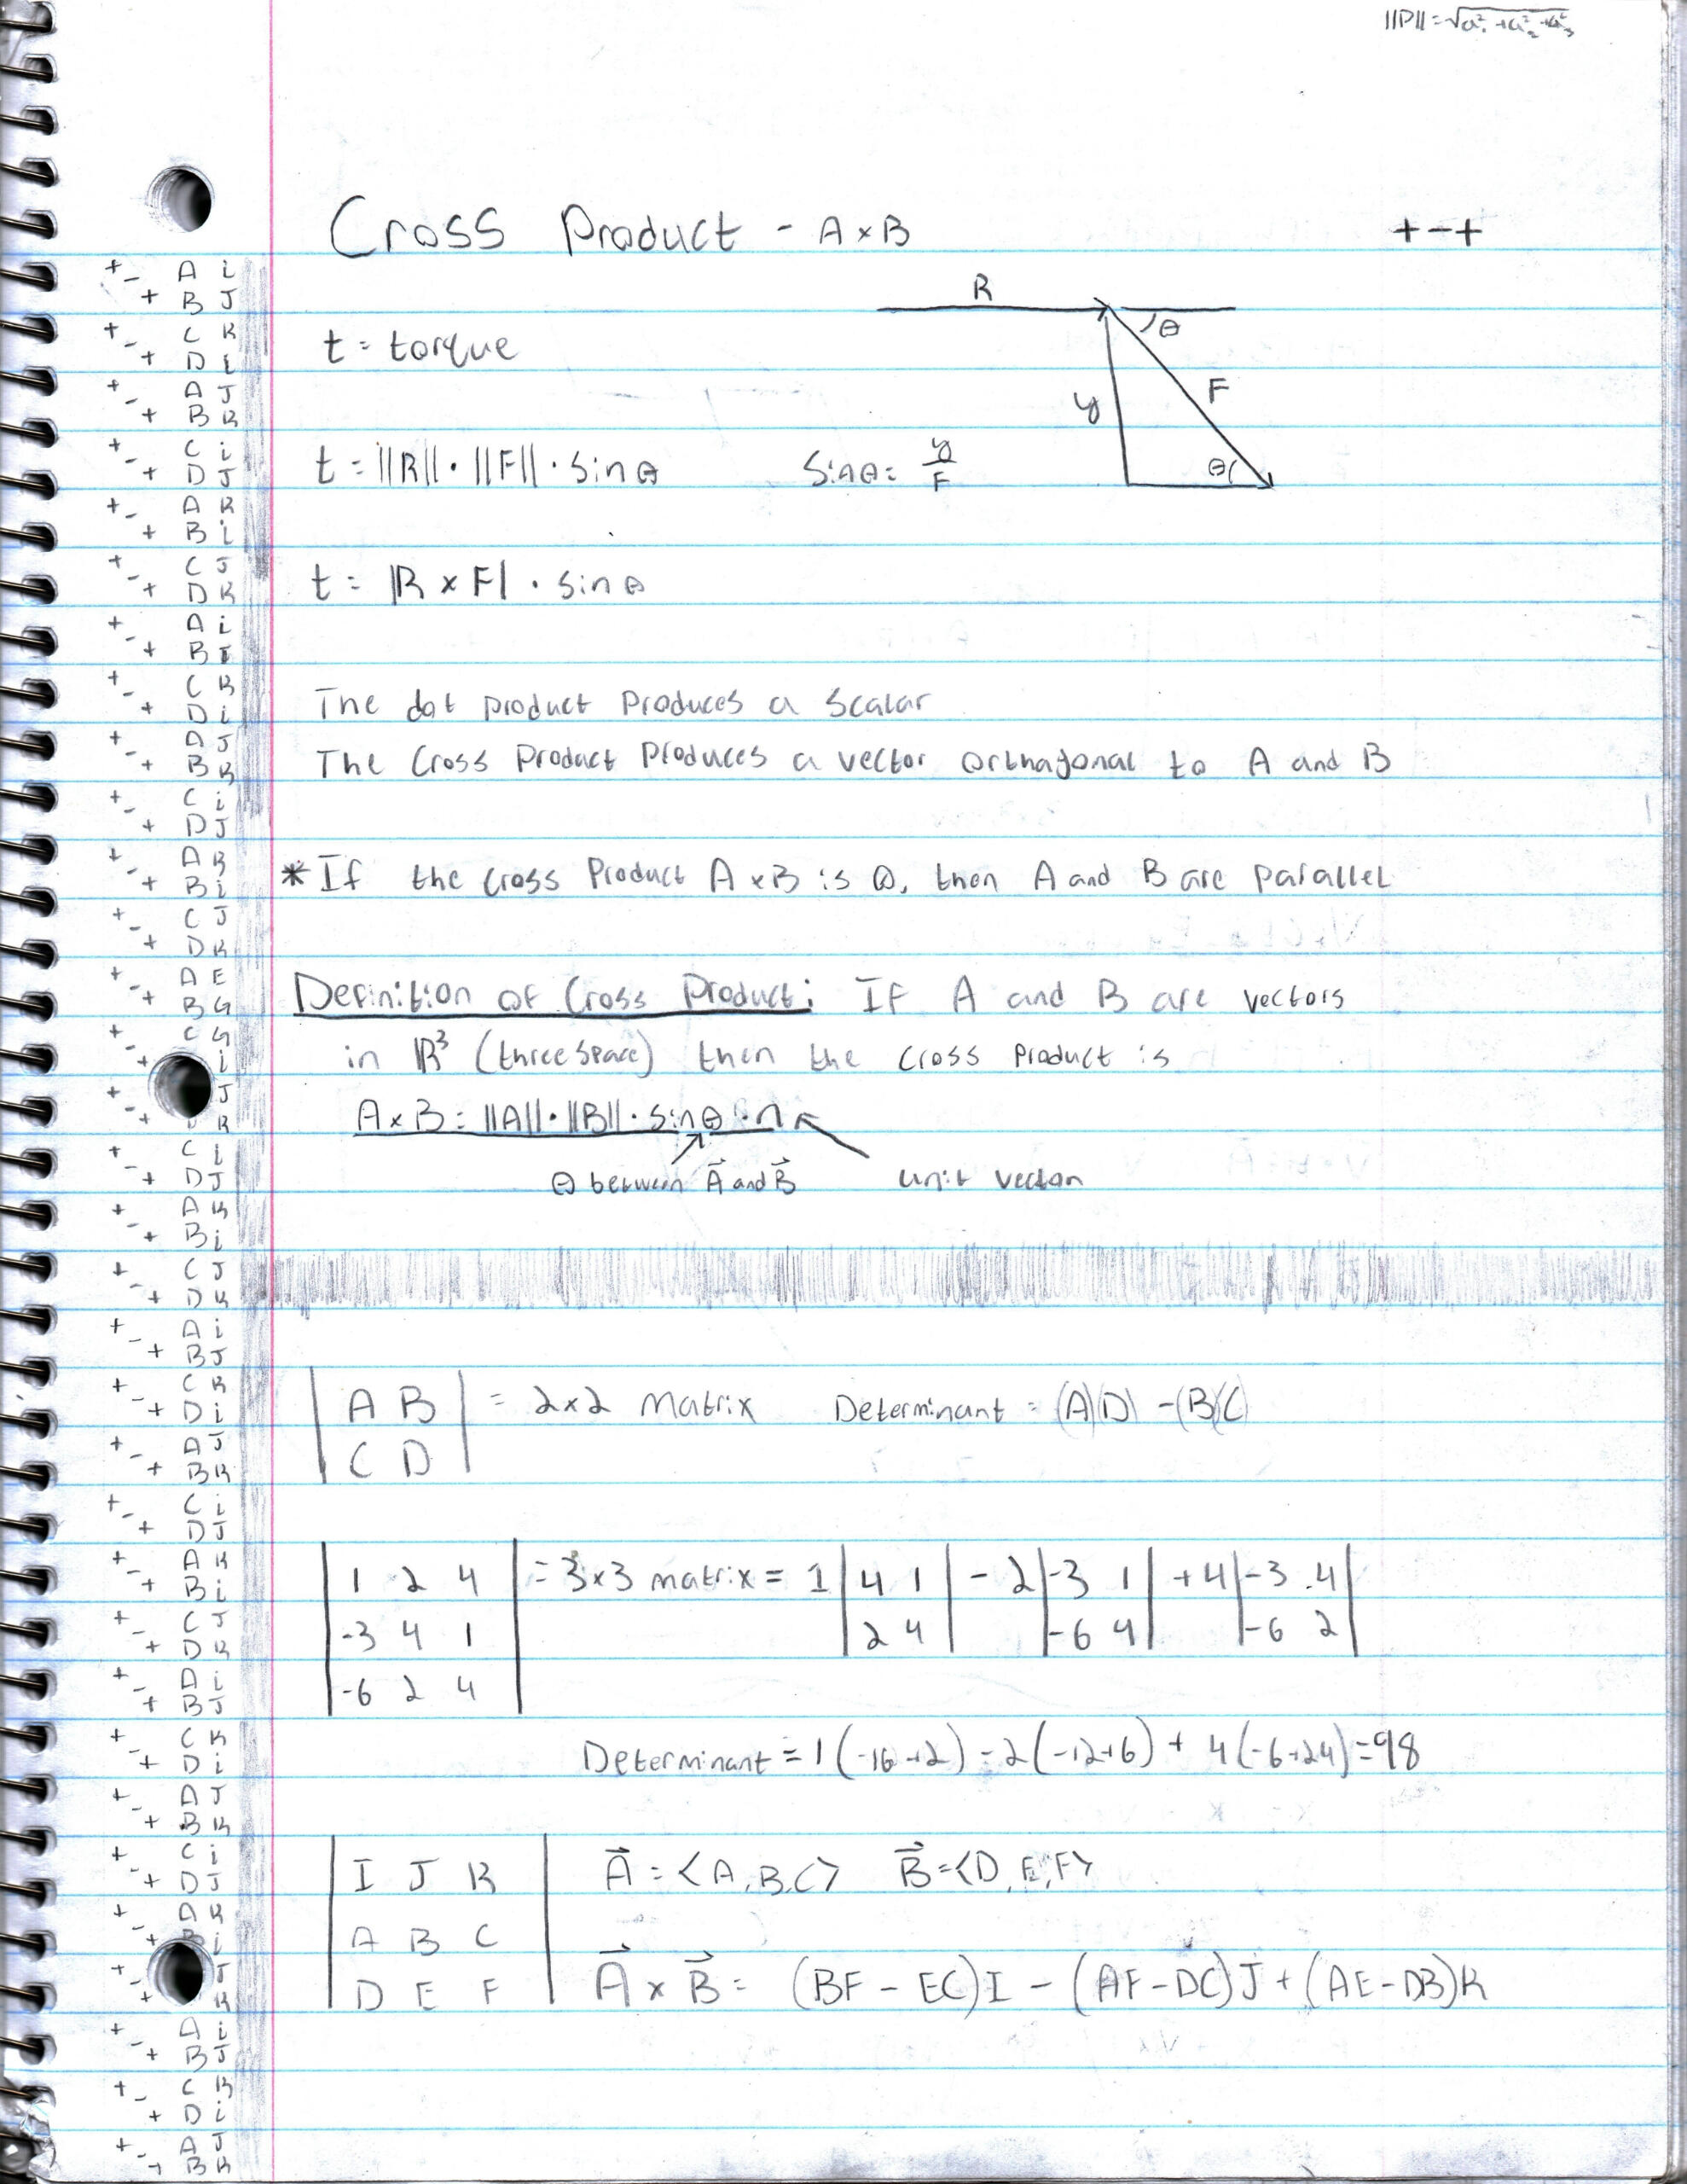 ||D|| = √a₁² + a₂² + a₃²
Cross Product - A × B
+ - +
R
θ
t = torque
F
y
t = ||R|| · ||F|| · sin θ
sin θ = y/F
θ
t = |R × F| · sin θ
The dot product produces a scalar
The Cross Product Produces a vector orthagonal to A and B
* If the cross Product A × B is 0, then A and B are parallel
Definition of Cross Product: If A and B are vectors
in ℝ³ (three space) then the cross product is
A × B = ||A|| · ||B|| · sin θ · n
θ between A⃗ and B⃗
unit vector
| A B | = 2×2 Matrix Determinant = (A)(D) - (B)(C)
| C D |
| 1 2 4 | = 3×3 matrix = 1 | 4 1 | - 2 | -3 1 | + 4 | -3 4 |
| -3 4 1 | | 2 4 | | -6 4 | | -6 2 |
| -6 2 4 |
Determinant = 1(-16+2) - 2(-12+6) + 4(-6+24) = 98
| I J K | A⃗ = <A, B, C> B⃗ = <D, E, F>
| A B C |
| D E F | A⃗ × B⃗ = (BF - EC)I - (AF - DC)J + (AE - DB)K
+ - + A i
B J
+ - + C K
D i
+ - + A J
B K
+ - + C i
D J
+ - + A K
B i
+ - + C J
D K
+ - + A i
B J
+ - + C K
D i
+ - + A J
B K
+ - + C i
D J
+ - + A K
B i
+ - + C J
D K
+ - + A E
B G
+ - + C G
i
+ - + J
K
+ - + C i
D J
+ - + A K
B i
+ - + C J
D K
+ - + A i
B J
+ - + C K
D i
+ - + A J
B K
+ - + C i
D J
+ - + A K
B i
+ - + C J
D K
+ - + A i
B J
+ - + C K
D i
+ - + A J
B K
+ - + C i
D J
+ - + A K
B i
+ - + J
K
+ - + A i
B J
+ - + C K
D i
+ - + A J
B K